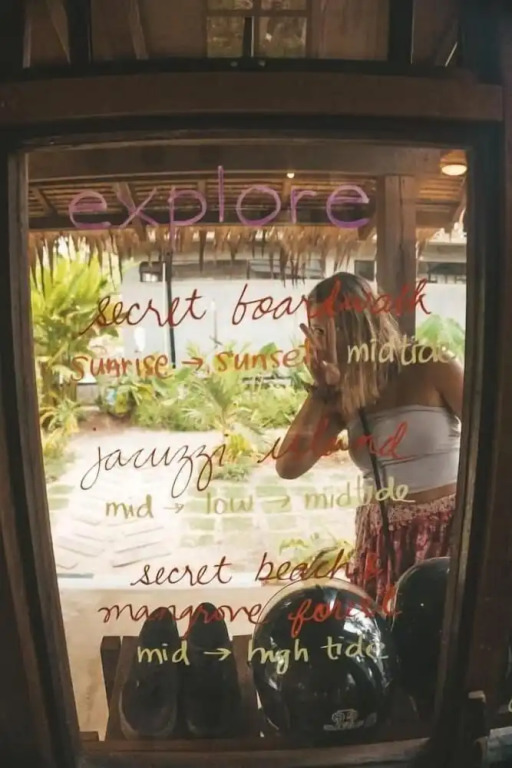 explore
secret boardwalk
sunrise → sunset midtide
jacuzzi island
mid → low → midtide
secret beach &
mangrove forest
mid → high tide